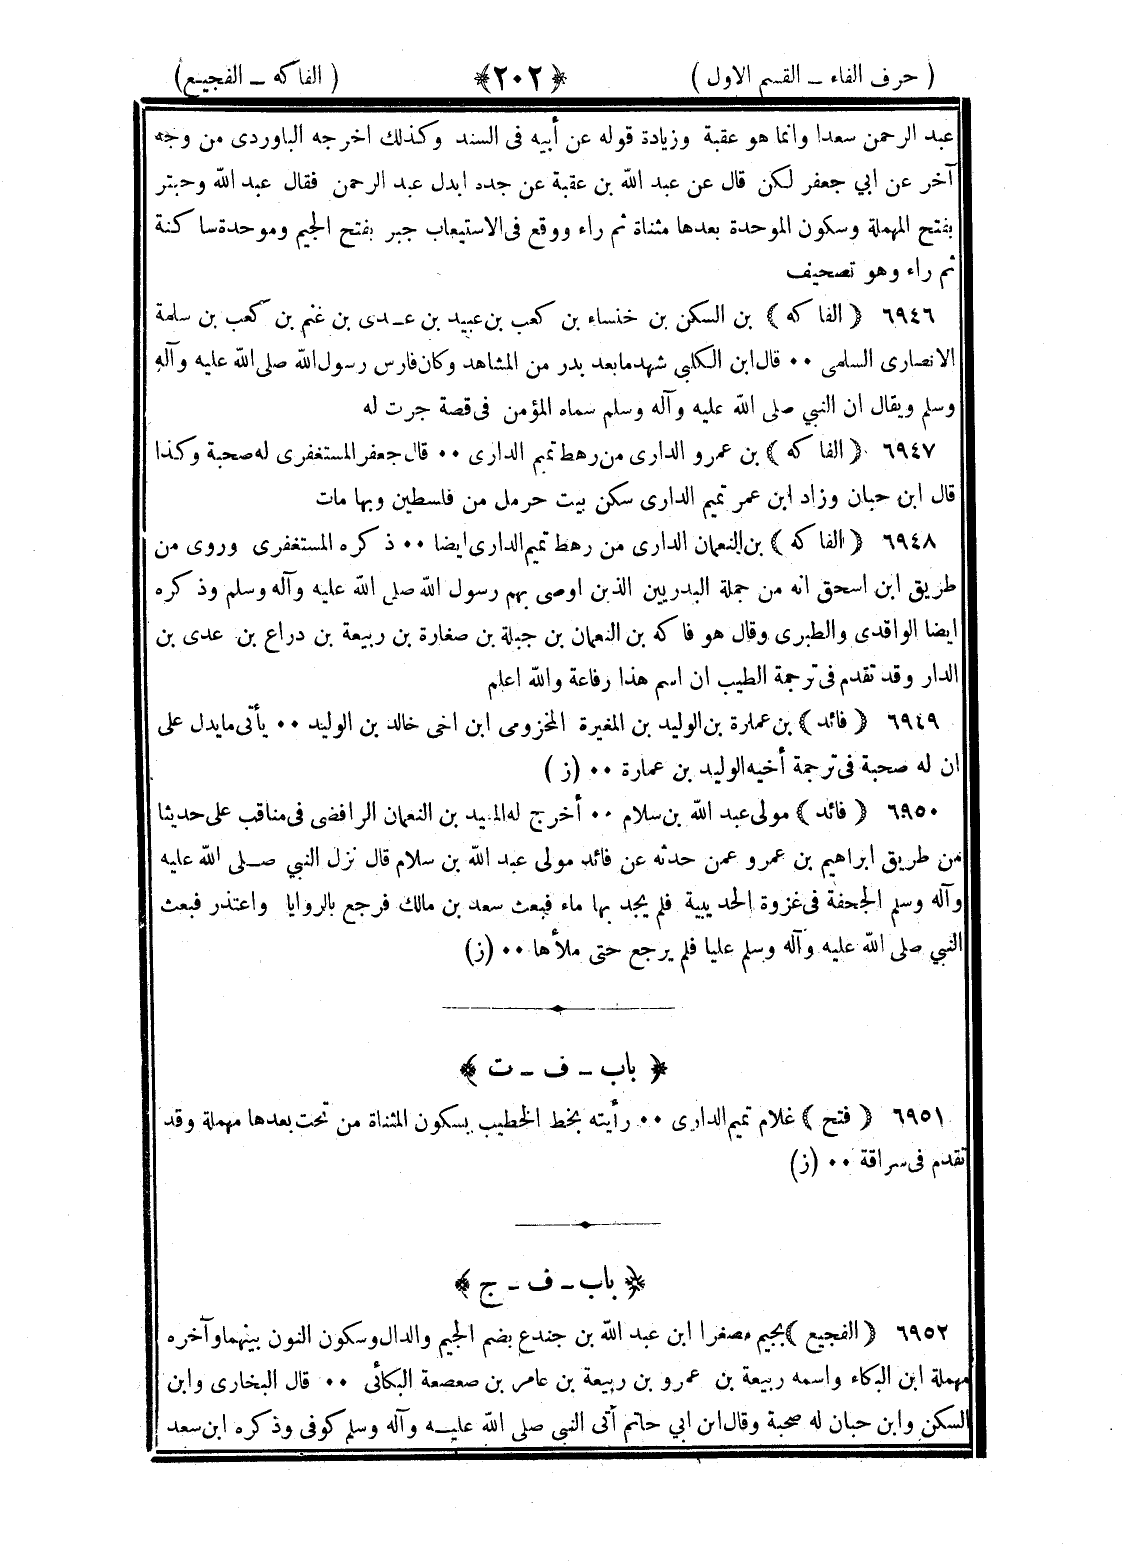 ( حرف الفاء ــ القسم الاول ) ﴿٢٠٢﴾ ( الفاكه ــ الفجيع)
عبد الرحمن سعدا وانما هو عقبة وزيادة قوله عن أبيه فى السند وكذلك اخرجه الباوردى من وجه
آخر عن ابي جعفر لكن قال عن عبد الله بن عقبة عن جده ابدل عبد الرحمن فقال عبد الله وحبتر
بفتح المهملة وسكون الموحدة بعدها مثناة ثم راء ووقع فى الاستيعاب جبر بفتح الجيم وموحدة ساكنة
ثم راء وهو تصحيف
٦٩٤٦ ﴿ الفاكه ﴾ بن السكن بن خنساء بن كعب بن عبيد بن عــدى بن غنم بن كعب بن سلمة
الانصارى السلمى ٠٠ قال ابن الكلبي شهد مابعد بدر من المشاهد وكان فارس رسول الله صلى الله عليه وآله
وسلم ويقال ان النبي صلى الله عليه وآله وسلم سماه المؤمن فى قصة جرت له
٦٩٤٧ ﴿ الفاكه ﴾ بن عمرو الدارى من رهط تميم الدارى ٠٠ قال جعفر المستغفرى له صحبة وكذا
قال ابن حبان وزاد ابن عمر تميم الدارى سكن بيت حرمل من فلسطين وبها مات
٦٩٤٨ ﴿ الفاكه ﴾ بن النعمان الدارى من رهط تميم الدارى ايضا ٠٠ ذكره المستغفرى وروى من
طريق ابن اسحق انه من جملة البدريين الذين اوصى بهم رسول الله صلى الله عليه وآله وسلم وذكره
ايضا الواقدى والطبرى وقال هو فاكه بن النعمان بن جبلة بن صفارة بن ربيعة بن دراع بن عدى بن
الدار وقد تقدم فى ترجمة الطيب ان اسم هذا رفاعة والله اعلم
٦٩٤٩ ﴿ فائد ﴾ بن عمارة بن الوليد بن المغيرة المخزومى ابن اخى خالد بن الوليد ٠٠ يأتى مايدل على
ان له صحبة فى ترجمة أخيه الوليد بن عمارة ٠٠ (ز)
٦٩٥٠ ﴿ فائد ﴾ مولى عبد الله بن سلام ٠٠ أخرج له المفيد بن النعمان الرافضى فى مناقب على حديثا
من طريق ابراهيم بن عمرو عمن حدثه عن فائد مولى عبد الله بن سلام قال نزل النبي صــلى الله عليه
وآله وسلم الجحفة فى غزوة الحديبية فلم يجد بها ماء فبعث سعد بن مالك فرجع بالروايا واعتذر فبعث
النبي صلى الله عليه وآله وسلم عليا فلم يرجع حتى ملأها ٠٠ (ز)
﴿ باب ــ ف ــ ت ﴾
٦٩٥١ ﴿ فتح ﴾ غلام تميم الدارى ٠٠ رأيته بخط الخطيب بسكون المثناة من تحت بعدها مهملة وقد
تقدم فى سراقة ٠٠ (ز)
﴿ باب ــ ف ــ ج ﴾
٦٩٥٢ ﴿ الفجيع ﴾ بجيم مصغرا ابن عبد الله بن جندع بضم الجيم والدال وسكون النون بينهما وآخره
مهملة ابن البكاء واسمه ربيعة بن عمرو بن ربيعة بن عامر بن صعصعة البكائى ٠٠ قال البخارى وابن
السكن وابن حبان له صحبة وقال ابن ابي حاتم أتى النبي صلى الله عليــه وآله وسلم كوفى وذكره ابن سعد